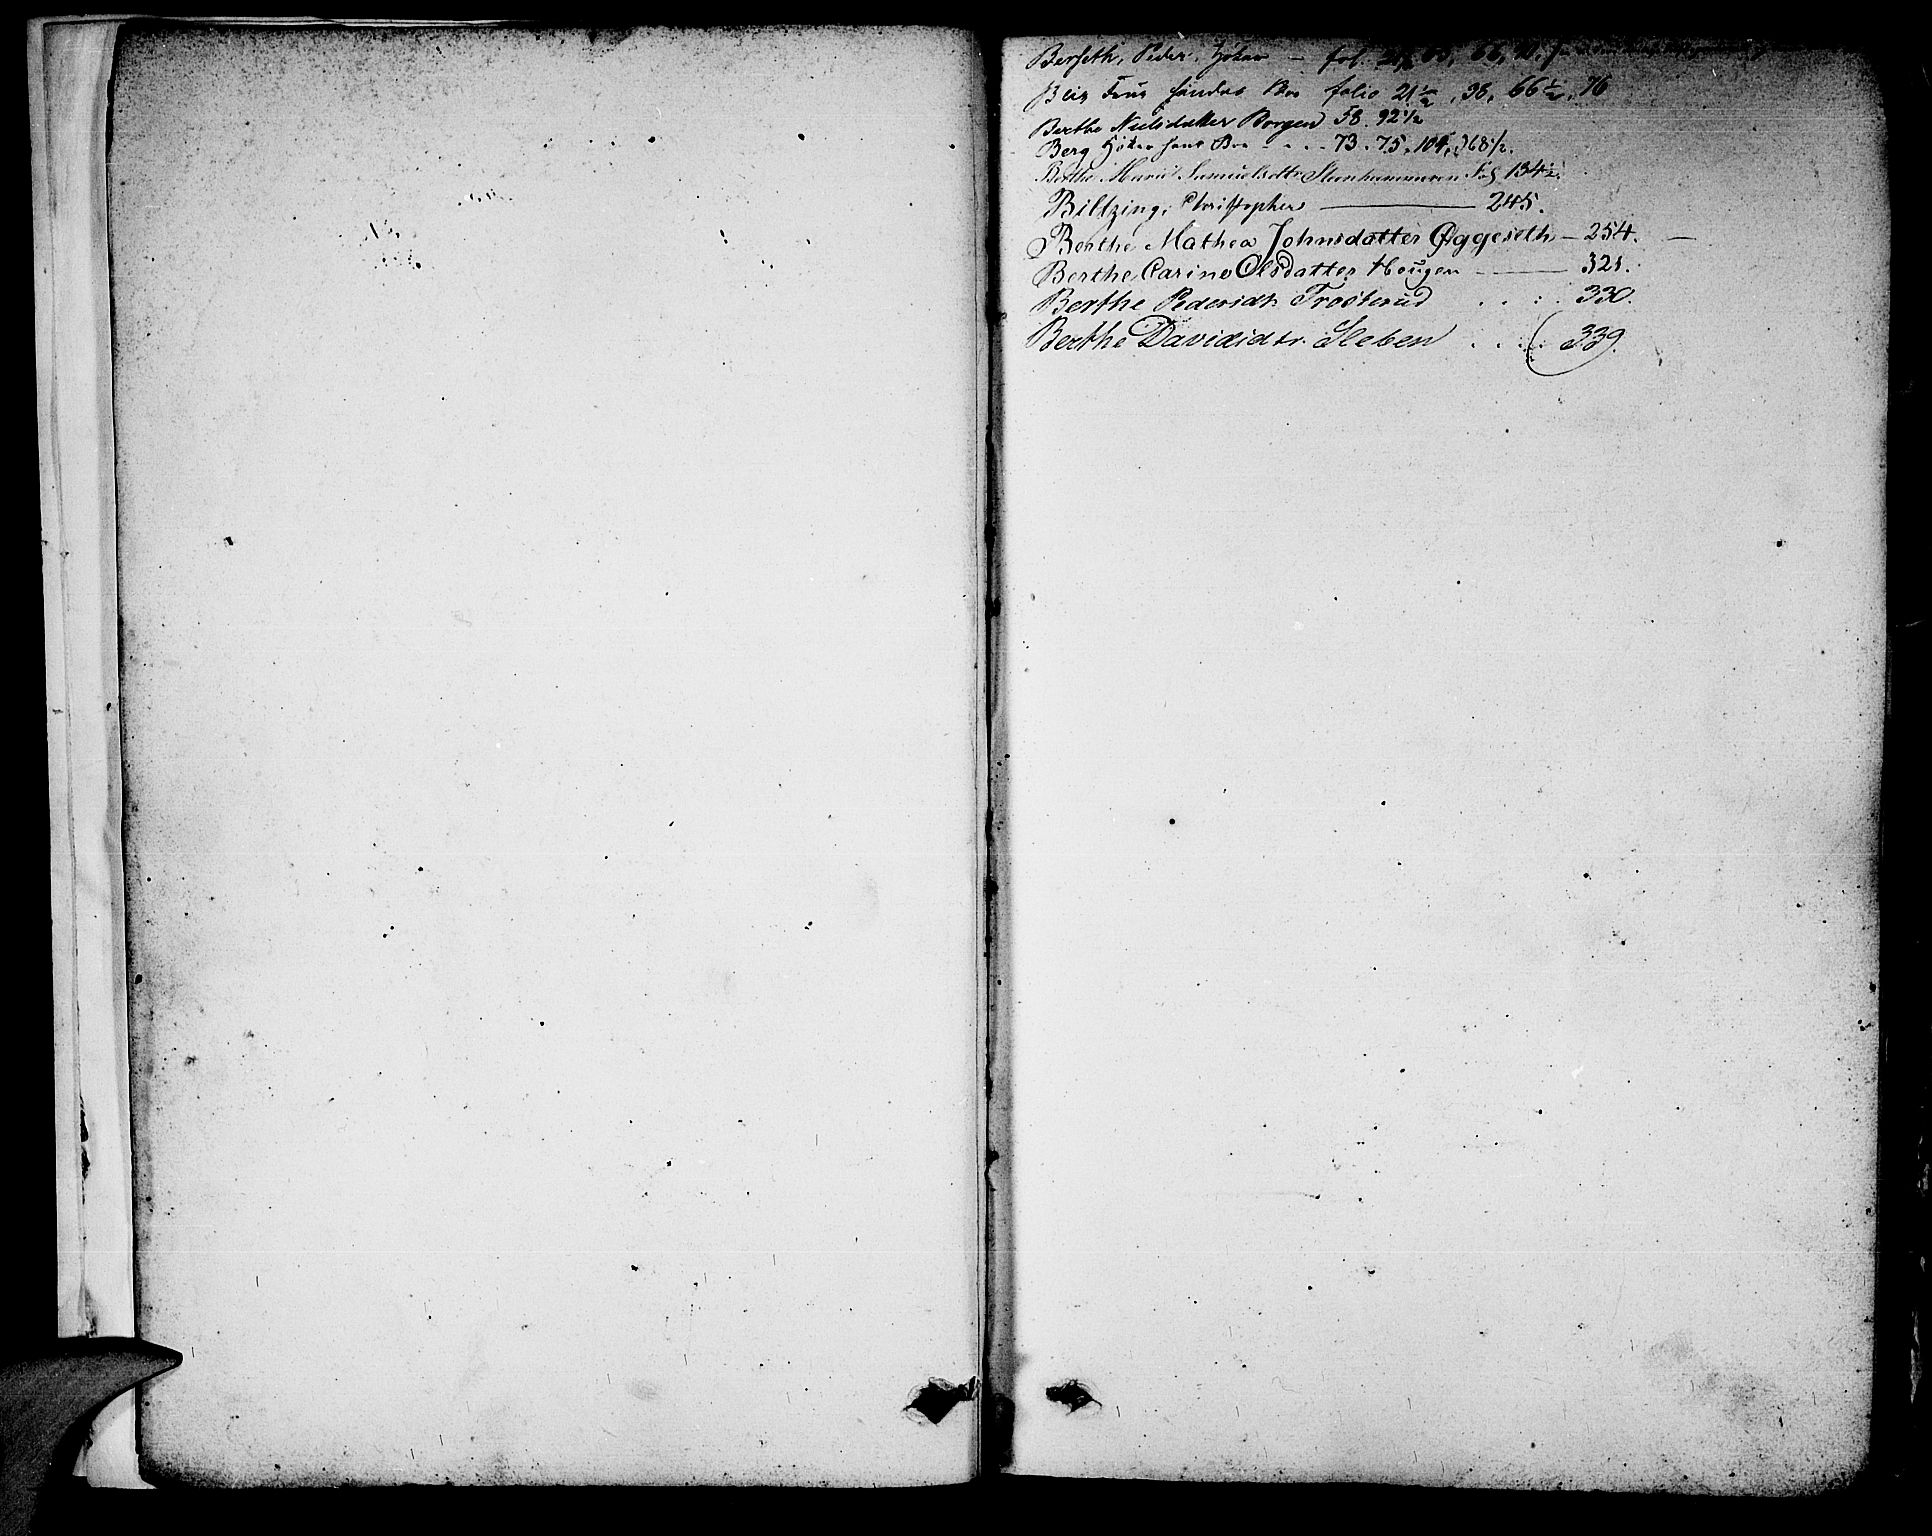 Berseth, Peder, Høker — fol. 60, 66,
Beis Frue hendes Bo folio 21 1/2, 38, 66 1/2, 76
Berthe Nielsdatter Borgen 58. 92 1/2
Berg Høker hans Boe - - . . 73. 75. 104, 368 1/2.
Berthe Marie Samuelsdtr Steenhammeren Fol 134 1/2.
Biltzing, Christopher ——— 245.
Berthe Mathea Johnsdatter Øggeseth — 254. —
Berthe Carine Olsdatter Hougen ——— 321.
Berthe Pedersdt. Trosterud . . : . 330.
Berthe Davidsdtr. Sleben . . . . 339.